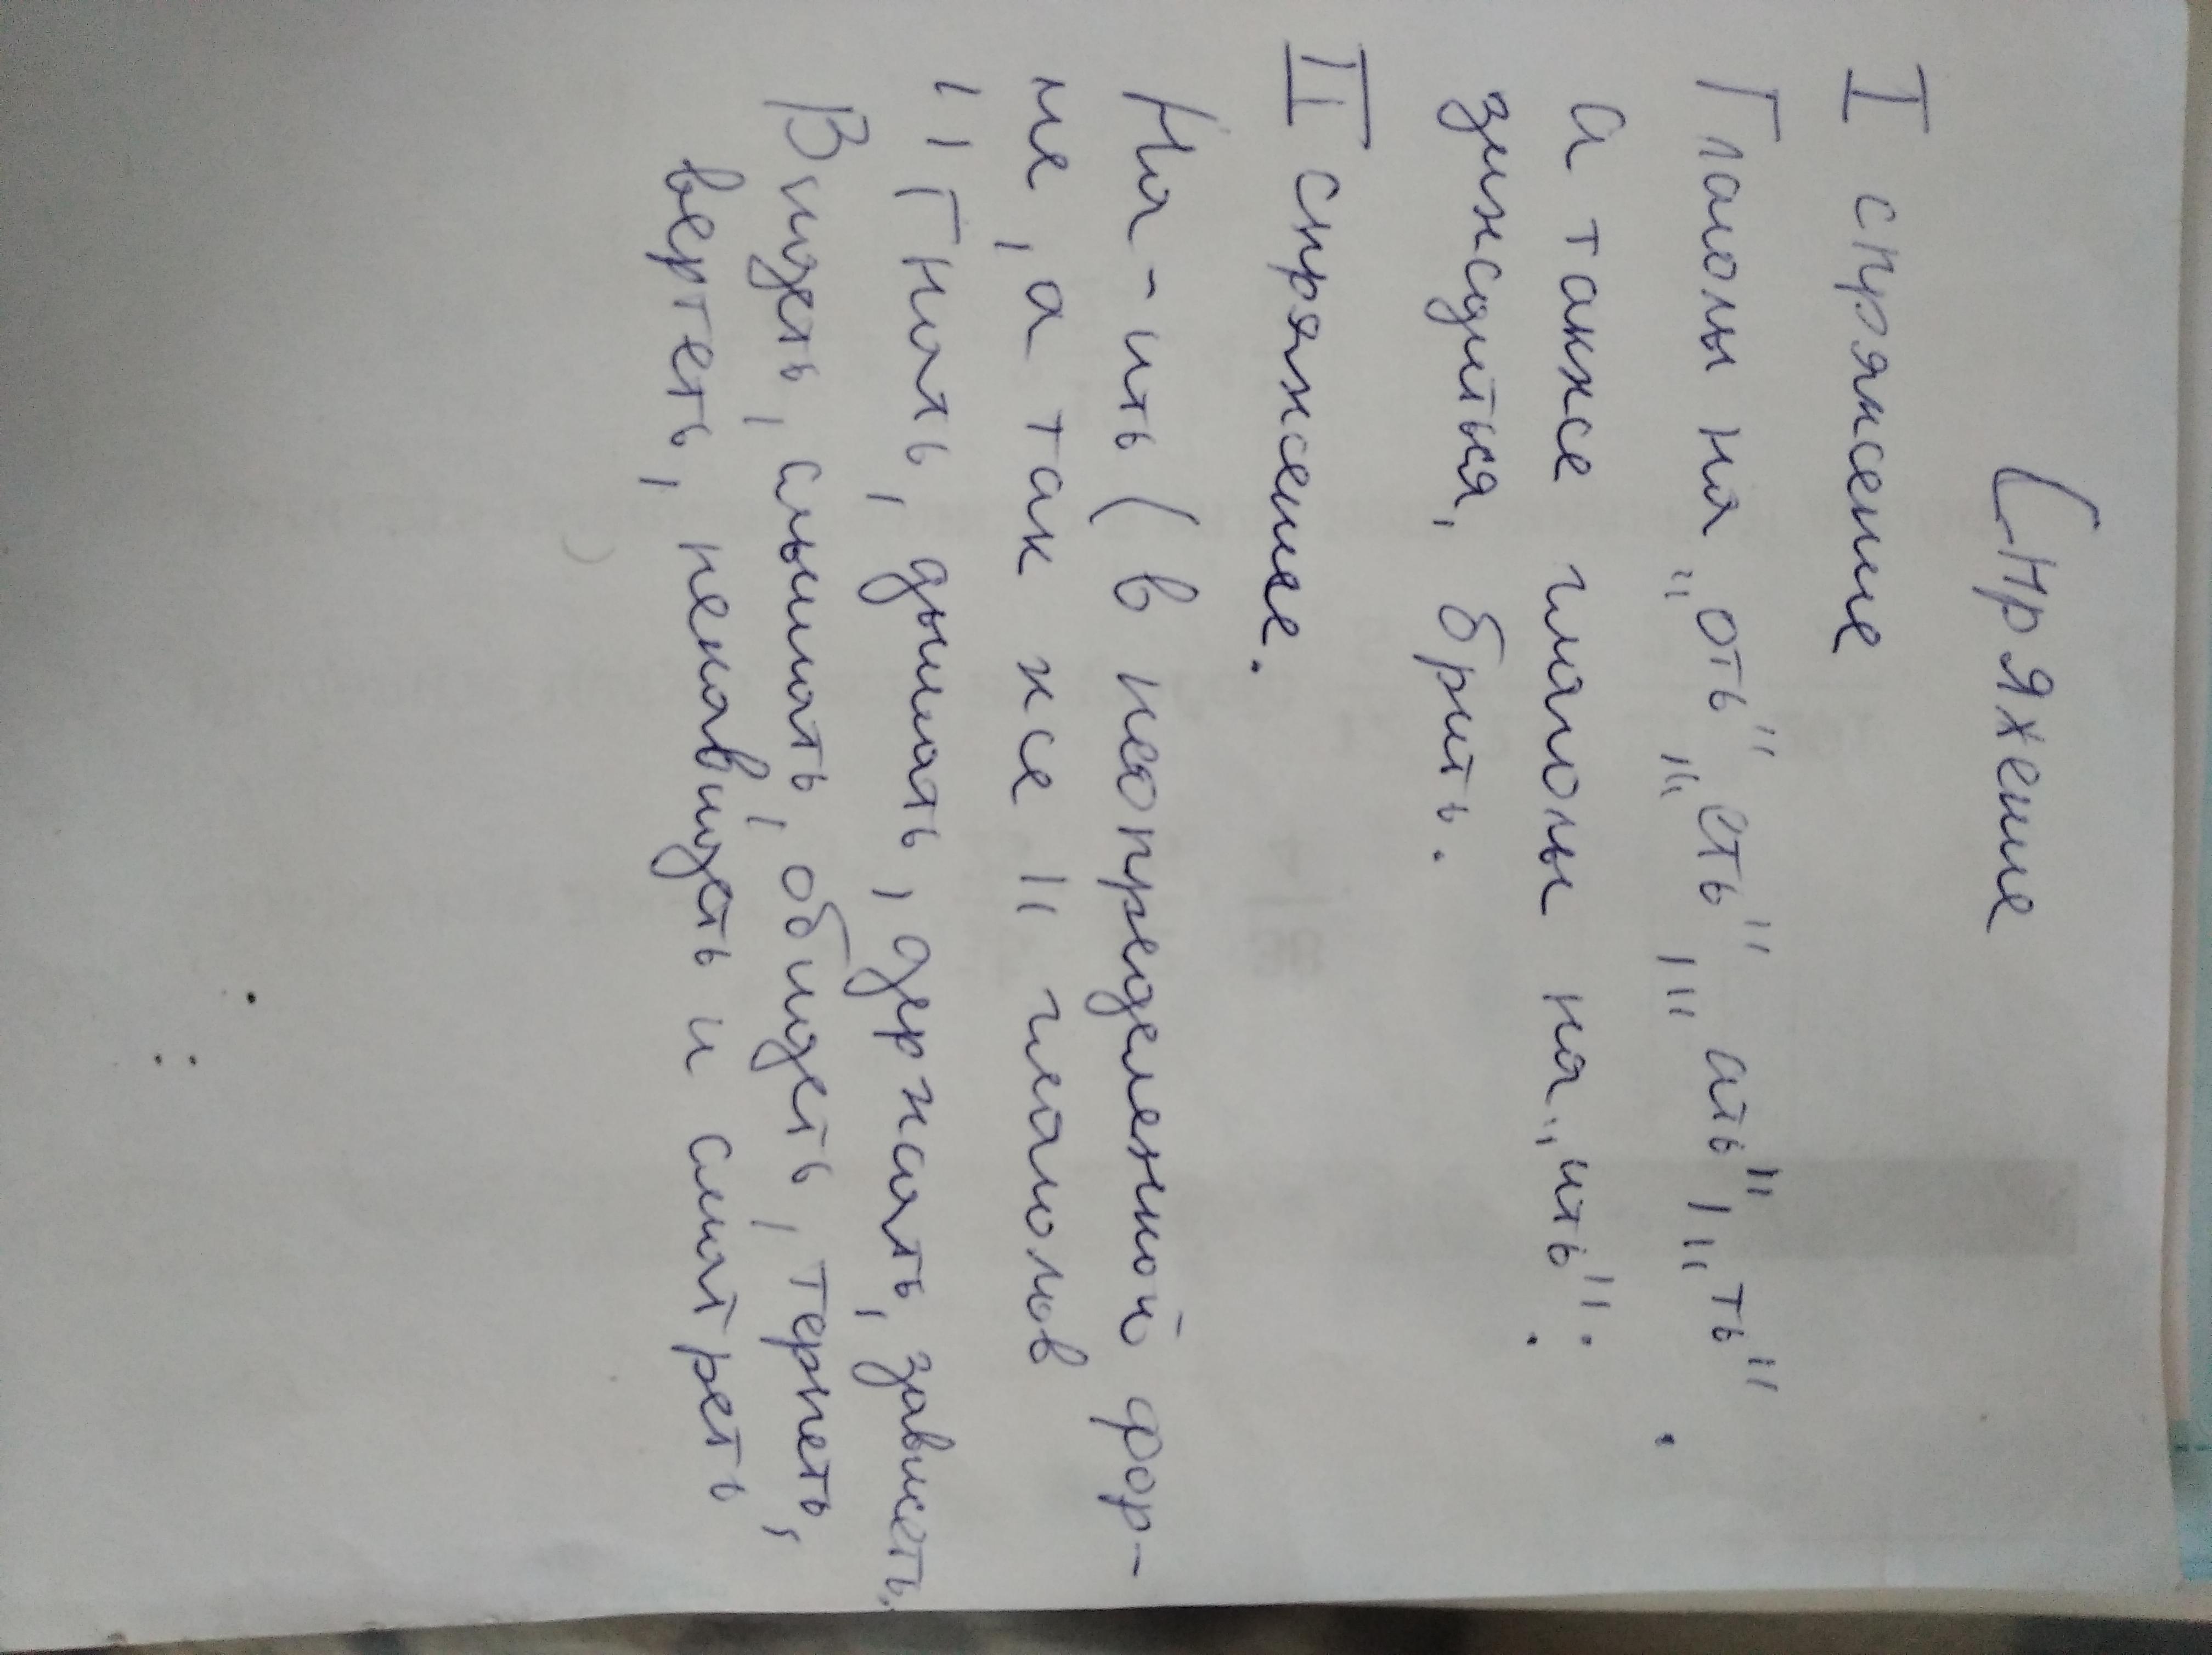 Спряжение
I спряжение
Глаголы на „оть" „еть", „ать", „ть".
а также глаголы на „ить":
зиждиться, брить.
II спряжение.
На -ить (в неопределенной фор-
ме, а так же 11 глаголов
Гнать, дышать, держать, зависеть.
Видеть, слышать, обидеть, терпеть,
вертеть, ненавидеть и смотреть